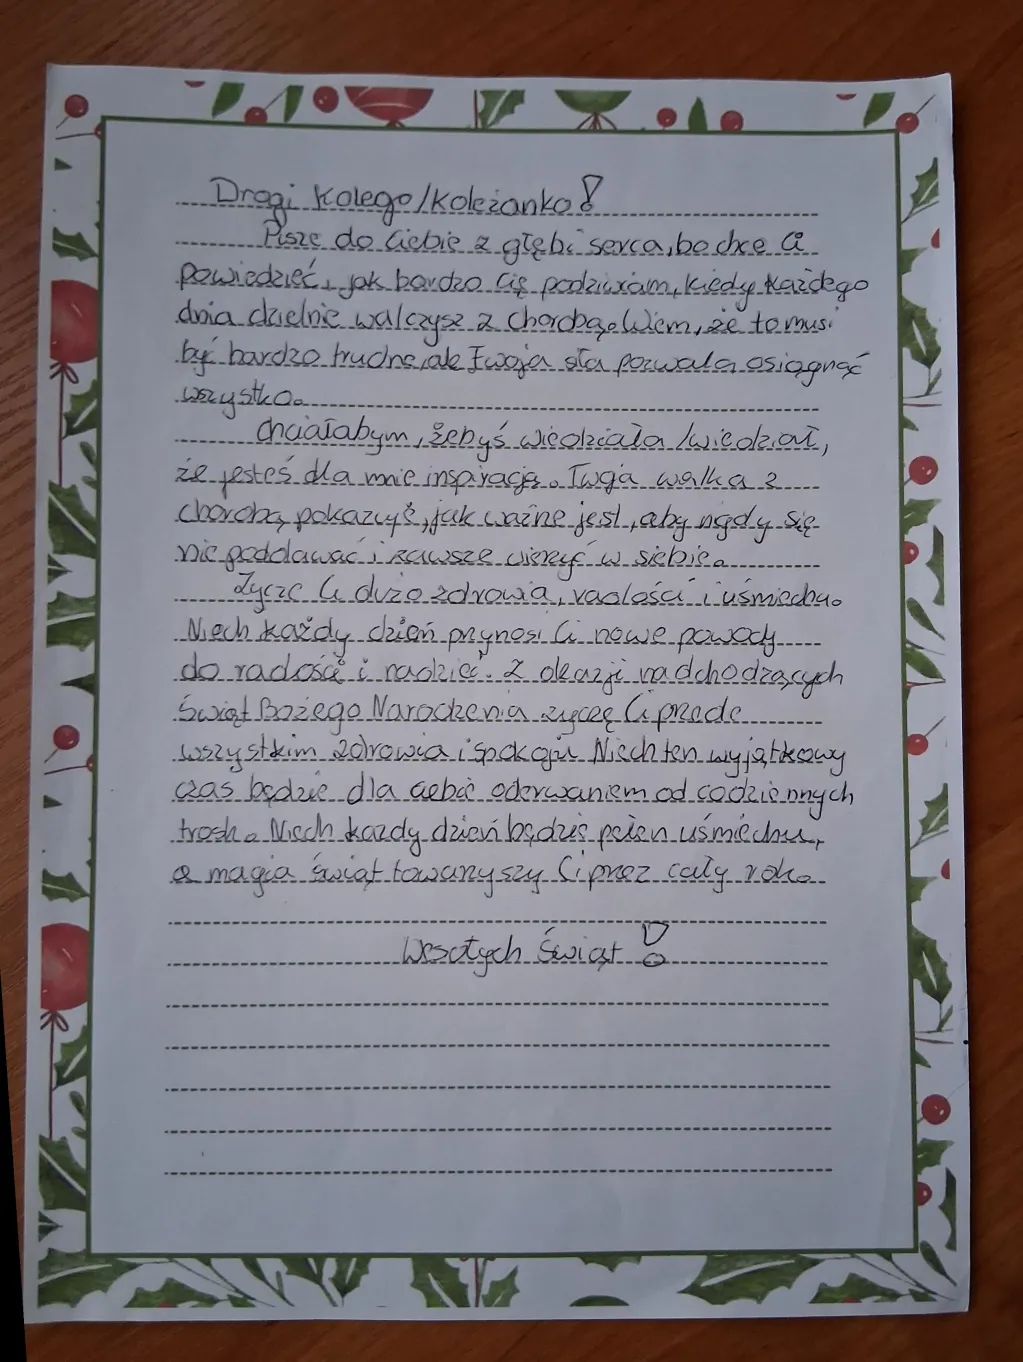 Drogi Kolego/Koleżanko!
Piszę do Ciebie z głębi serca, bo chcę Ci
powiedzieć, jak bardzo Cię podziwiam, kiedy każdego
dnia dzielnie walczysz z chorobą. Wiem, że to musi
być bardzo trudne, ale Twoja siła pozwala osiągnąć
wszystko.
Chciałabym, żebyś wiedziała/wiedział,
że jesteś dla mnie inspiracją. Twoja walka z
chorobą pokazuje, jak ważne jest, aby nigdy się
nie poddawać i zawsze wierzyć w siebie.
Życzę Ci dużo zdrowia, radości i uśmiechu.
Niech każdy dzień przynosi Ci nowe powody
do radości i nadziei. Z okazji nadchodzących
Świąt Bożego Narodzenia życzę Ci przede
wszystkim zdrowia i spokoju. Niech ten wyjątkowy
czas będzie dla Ciebie oderwaniem od codziennych
trosk. Niech każdy dzień będzie pełen uśmiechu,
a magia świąt towarzyszy Ci przez cały rok.
Wesołych Świąt!